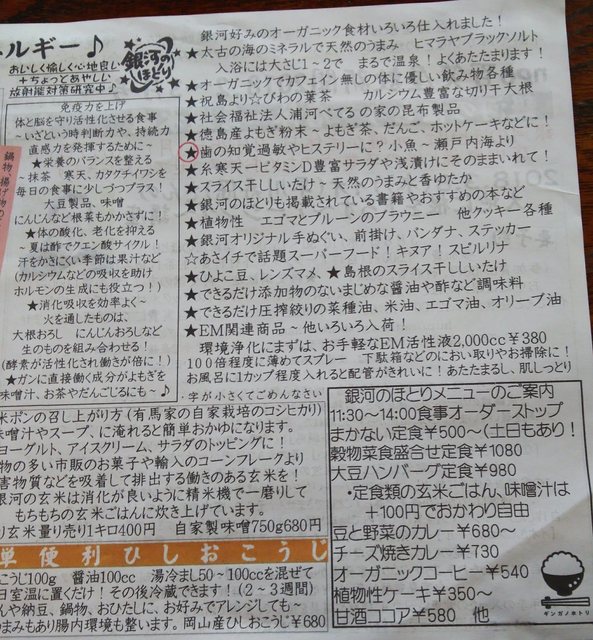 ルギー♪
おいしく愉しく心地良い
＋ちょっとあやしい
放射能対策研究中♪
銀河のほとり
免疫力を上げ
体と脳を守り活性化させる食事
～いざという時判断力や、持続力
直感力を発揮するために～
★栄養のバランスを整える
～抹茶 寒天、カタクチイワシを
毎日の食事に少しづつプラス！
大豆製品、味噌
にんじんなど根菜もかかさずに！
★体の酸化、老化を抑える
～夏は酢でクエン酸サイクル！
汗をかきにくい季節は果汁など
(カルシウムなどの吸収を助け
ホルモンの生成にも役立つ！)
★消化吸収を効率よく～
火を通したものは、
大根おろし にんじんおろしなど
生のものを組み合わせる！
(酵素が活性化され働きが倍に！)
★ガンに直接働く成分がよもぎを
味噌汁、お茶やだんごるにも～♪
鍋物、揚げ物の
銀河好みのオーガニック食材いろいろ仕入れました！
★太古の海のミネラルで天然のうまみ ヒマラヤブラックソルト
入浴には大さじ1～2で まるで温泉！よくあたたまります！
★オーガニックでカフェイン無しの体に優しい飲み物各種
★祝島より☆びわの葉茶 カルシウム豊富な切り干大根
★社会福祉法人浦河べてる の家の昆布製品
★徳島産よもぎ粉末～よもぎ茶、だんご、ホットケーキなどに！
★歯の知覚過敏やヒステリーに？小魚～瀬戸内海より
★糸寒天ービタミンD豊富サラダや浅漬けにそのままいれて！
★スライス干ししいたけ～天然のうまみと香ゆたか
★銀河のほとりも掲載されている書籍やおすすめの本など
★植物性 エゴマとプルーンのブラウニー 他クッキー各種
★銀河オリジナル手ぬぐい、前掛け、バンダナ、ステッカー
☆あさイチで話題スーパーフード！キヌア！スピルリナ
★ひよこ豆、レンズマメ、★島根のスライス干ししいたけ
★できるだけ添加物のないまじめな醤油や酢など調味料
★できるだけ圧搾絞りの菜種油、米油、エゴマ油、オリーブ油
★EM関連商品～他いろいろ入荷！
環境浄化にまずは、お手軽なEM活性液2,000cc￥380
100倍程度に薄めてスプレー 下駄箱などのにおい取りやお掃除に！
お風呂に1カップ程度入れると配管がきれいに！あたたまるし、肌しっとり
・字が小さくてごめんなさい
米ポンの召し上がり方(有馬家の自家栽培のコシヒカリ)
味噌汁やスープ、に淹れると簡単おかゆになります。
ヨーグルト、アイスクリーム、サラダのトッピングに！
物の多い市販のお菓子や輸入のコーンフレークより
害物質などを吸着して排出する働きのある玄米を！
銀河の玄米は消化が良いように精米機で一磨りして
もちもちの玄米ごはんに炊き上げています。
り玄米量り売り1キロ400円 自家製味噌750g680円
単便利ひしおこうじ
こうじ100g 醤油100cc 湯冷まし50～100ccを混ぜて
日室温に置くだけ！その後冷蔵できます！(2～3週間)
んや納豆、鍋物、おひたしに、お好みでアレンジしても～
うまみもあり腸内環境も整います。岡山産ひしおこうじ￥680
銀河のほとりメニューのご案内
11:30～14:00食事オーダーストップ
まかない定食￥500～(土日もあり！
穀物菜食盛合せ定食￥1080
大豆ハンバーグ定食￥980
・定食類の玄米ごはん、味噌汁は
＋100円でおかわり自由
豆と野菜のカレー￥680～
チーズ焼きカレー￥730
オーガニックコーヒー￥540
植物性ケーキ￥350～
甘酒ココア￥580 他
ギンガノホトリ